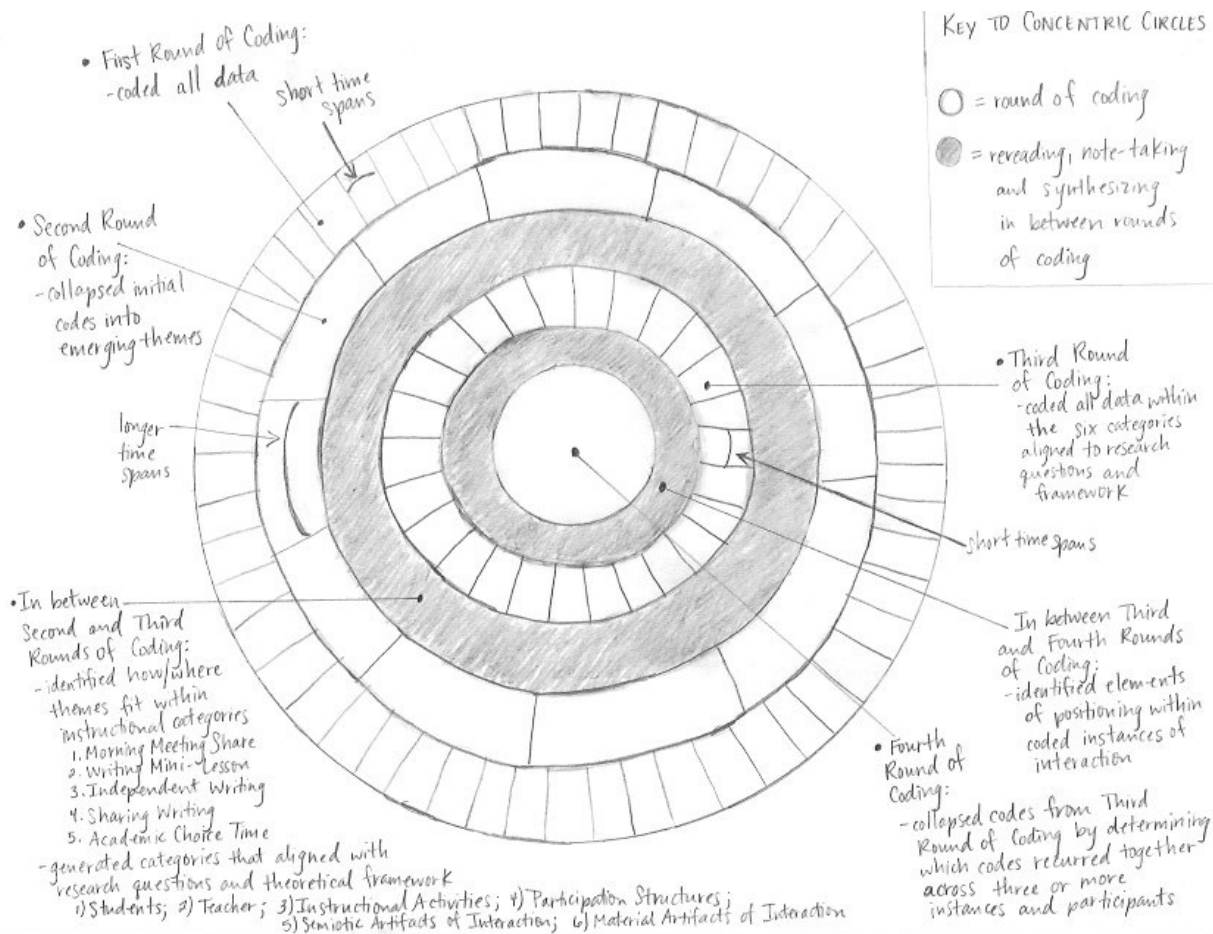 • First Round of Coding:
-coded all data
short time
spans
• Second Round
of Coding:
-collapsed initial
codes into
emerging themes
longer
time
spans
• In between
Second and Third
Rounds of Coding:
-identified how/where
themes fit within
instructional categories
1. Morning Meeting Share
2. Writing Mini-Lesson
3. Independent Writing
4. Sharing Writing
5. Academic Choice Time
-generated categories that aligned with
research questions and theoretical framework
1) Students; 2) Teacher; 3) Instructional Activities; 4) Participation Structures;
5) Semiotic Artifacts of Interaction; 6) Material Artifacts of Interaction
KEY TO CONCENTRIC CIRCLES
= round of coding
= rereading, note-taking
and synthesizing
in between rounds
of coding
• Third Round
of Coding:
-coded all data within
the six categories
aligned to research
questions and
framework
short time spans
In between Third
and Fourth Rounds
of Coding:
-identified elements
of positioning within
coded instances of
interaction
• Fourth
Round of
Coding:
-collapsed codes from Third
Round of Coding by determining
which codes recurred together
across three or more
instances and participants